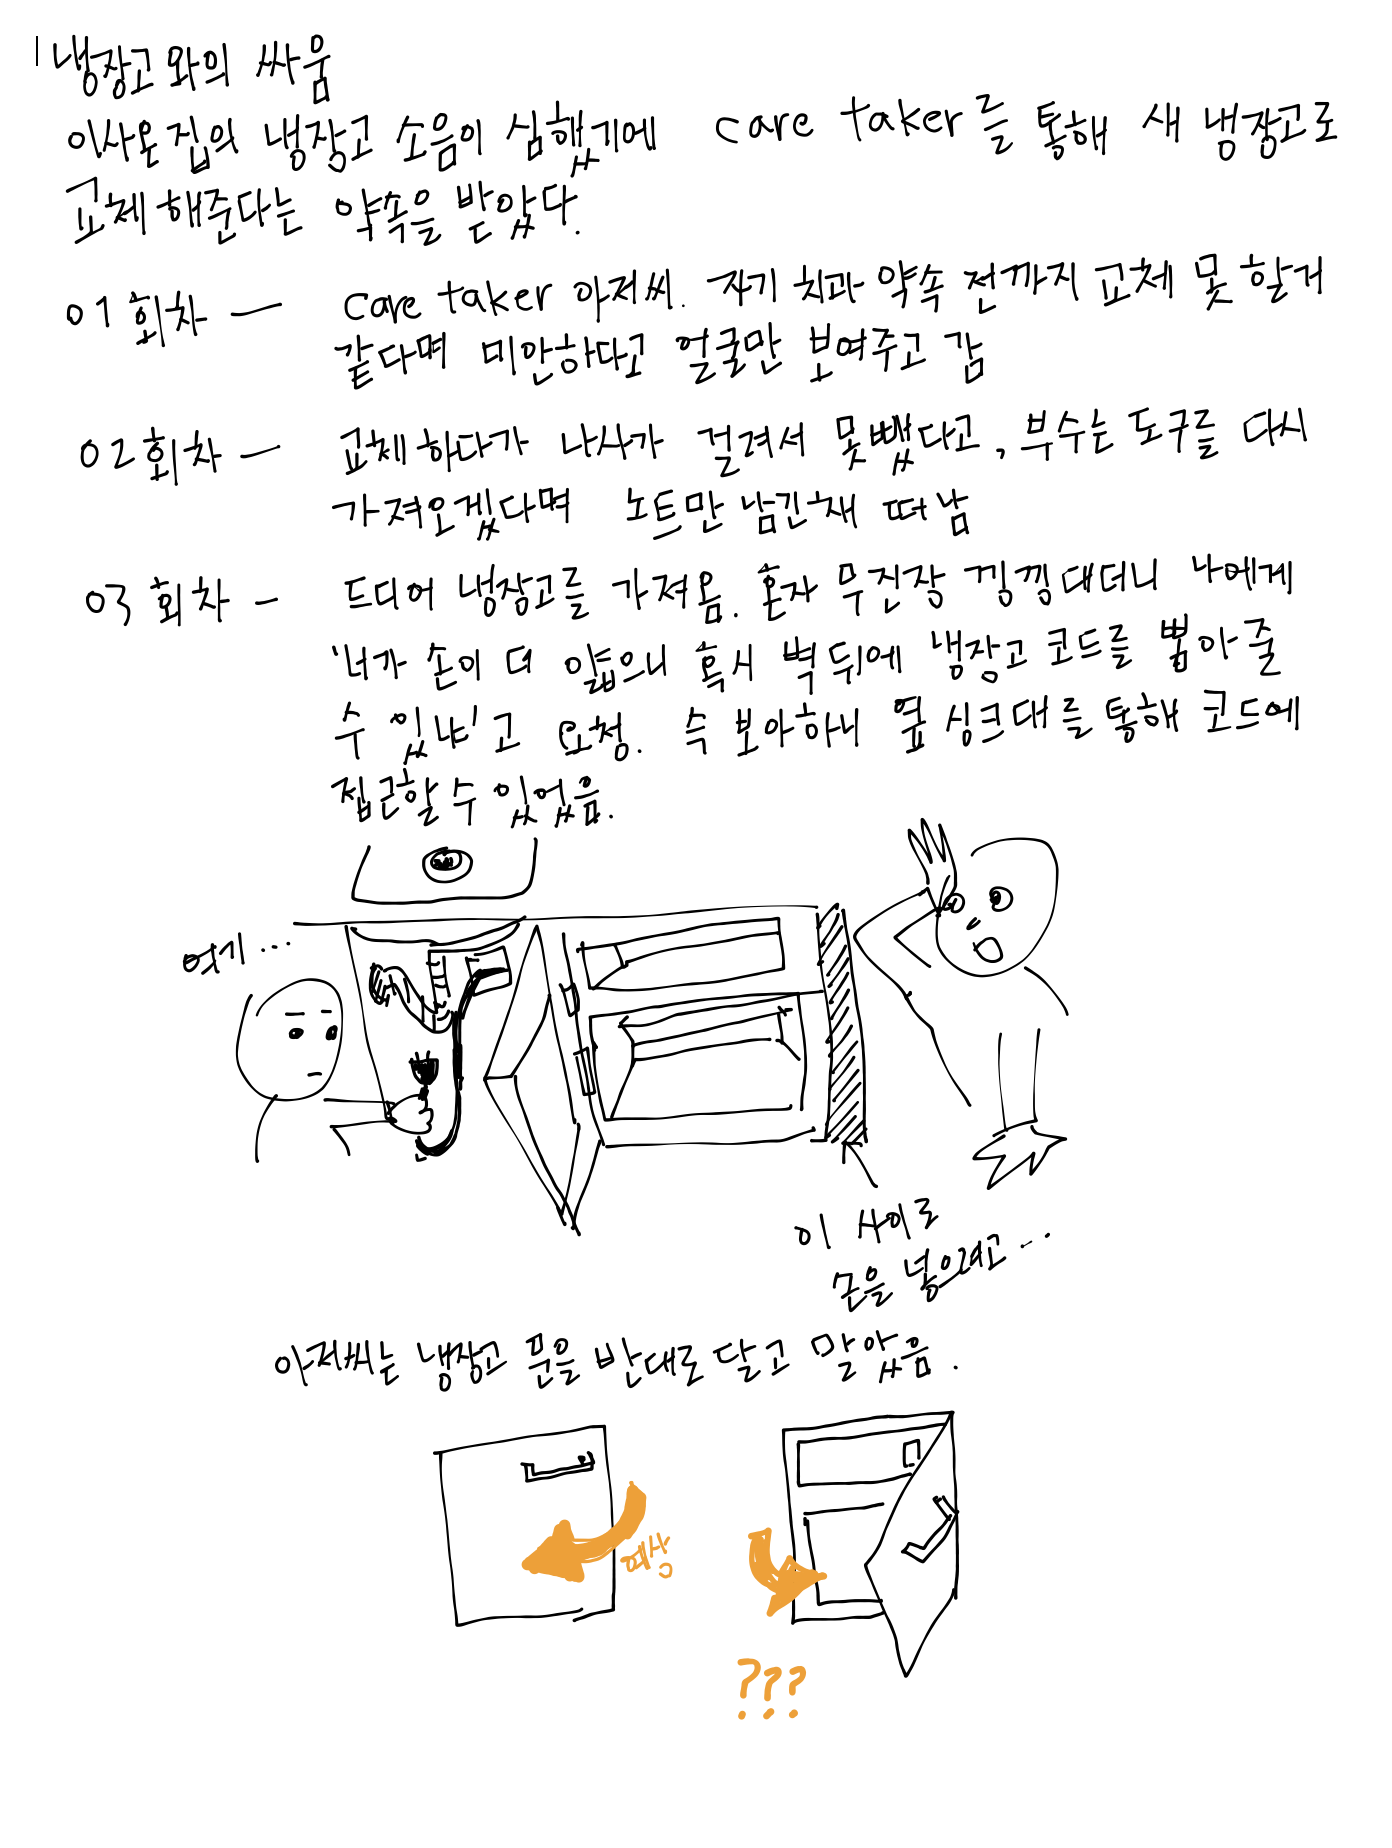 냉장고와의 싸움
이사온 집의 냉장고 소음이 심했기에 care taker를 통해 새 냉장고로
교체해준다는 약속을 받았다.
01회차 — care taker 아저씨. 자기 치과 약속 전까지 교체 못 할거
같다며 미안하다고 얼굴만 보여주고 감
02회차 — 교체하다가 나사가 걸려서 못뺐다고, 부수는 도구를 다시
가져오겠다며 노트만 남긴채 떠남
03회차 - 드디어 냉장고를 가져옴. 혼자 무진장 낑낑대더니 나에게
'너가 손이 더 얇으니 혹시 벽 뒤에 냉장고 코드를 뽑아 줄
수 있냐'고 요청. 슥 보아하니 옆 싱크대를 통해 코드에
접근할 수 있었음.
여기...
이 사이로
손을 넣으려고...
아저씨는 냉장고 문을 반대로 달고 말았음.
예상
???